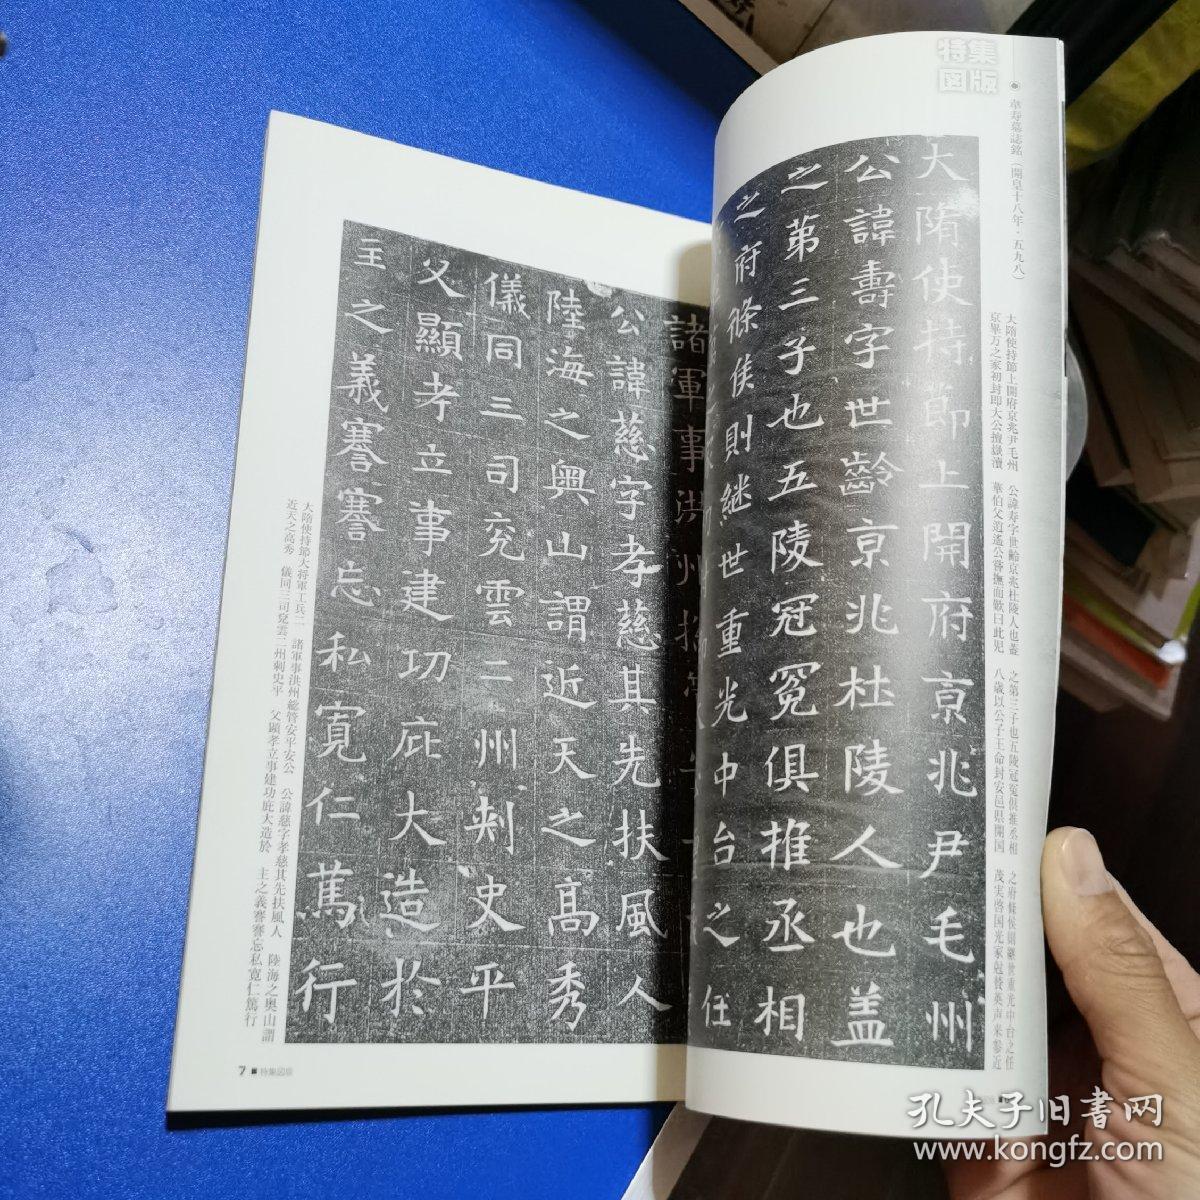 特集
図版
韋寿墓誌銘（開皇十八年・五九八）
大隋使持節上開府京兆尹毛州
公諱壽字世齡京兆杜陵人也蓋
之第三子也五陵冠冕俱推丞相
之府條侯則継世重光中台之任
大隋使持節上開府京兆尹毛州
公諱寿字世齢京兆杜陵人也蓋
之第三子也五陵冠冕倶推丞相
之府條侯則継世重光中台之任
京畢万之家初封即大公擅嶽瀆
華伯父逍遙公嘗撫而歎曰此児
八歳以公子王命封安邑県開国
諸軍事洪州總管
公諱慈字孝慈其先扶風人
陸海之奧山謂近天之高秀
儀同三司兖雲二州刺史平
父顯孝立事建功庇大造於
主之義謇謇忘私寛仁篤行
大隋使持節大将軍工兵二
諸軍事洪州総管安平安公
公諱慈字孝慈其先扶風人
陸海之奥山謂
近天之高秀
儀同三司兗雲二州刺史平
父顕孝立事建功庇大造於
主之義謇謇忘私寛仁篤行
7 ■ 特集図版
孔夫子旧书网
www.kongfz.com